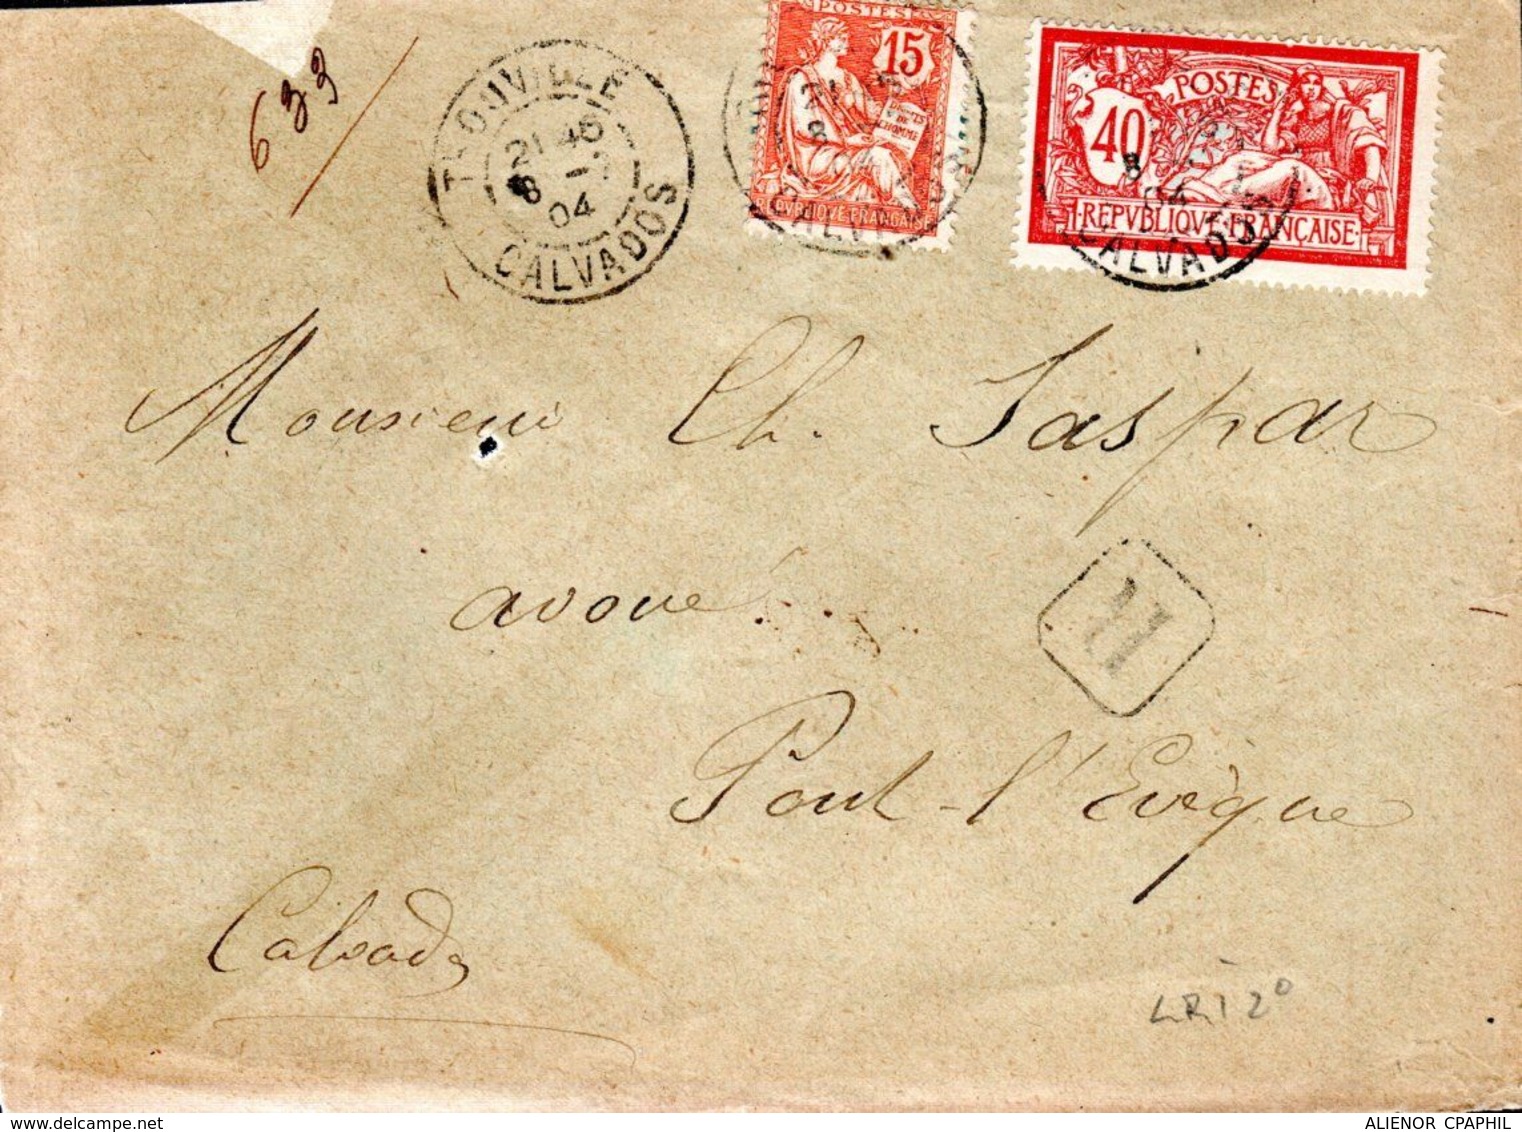 633
TROUVILLE
21 45
8 -7
04
CALVADOS
POSTES
15
DROITS
DE
L'HOMME
REPVBLIQVE FRANÇAISE
8
04
CALVADOS
POSTES
40
REPVBLIQVE FRANÇAISE
8
04
CALVADOS
Monsieur Ch. Jaspar
avoué
R
Pont-l'Evêque
Calvados
LRI 2°
ALIENOR CPAPHIL